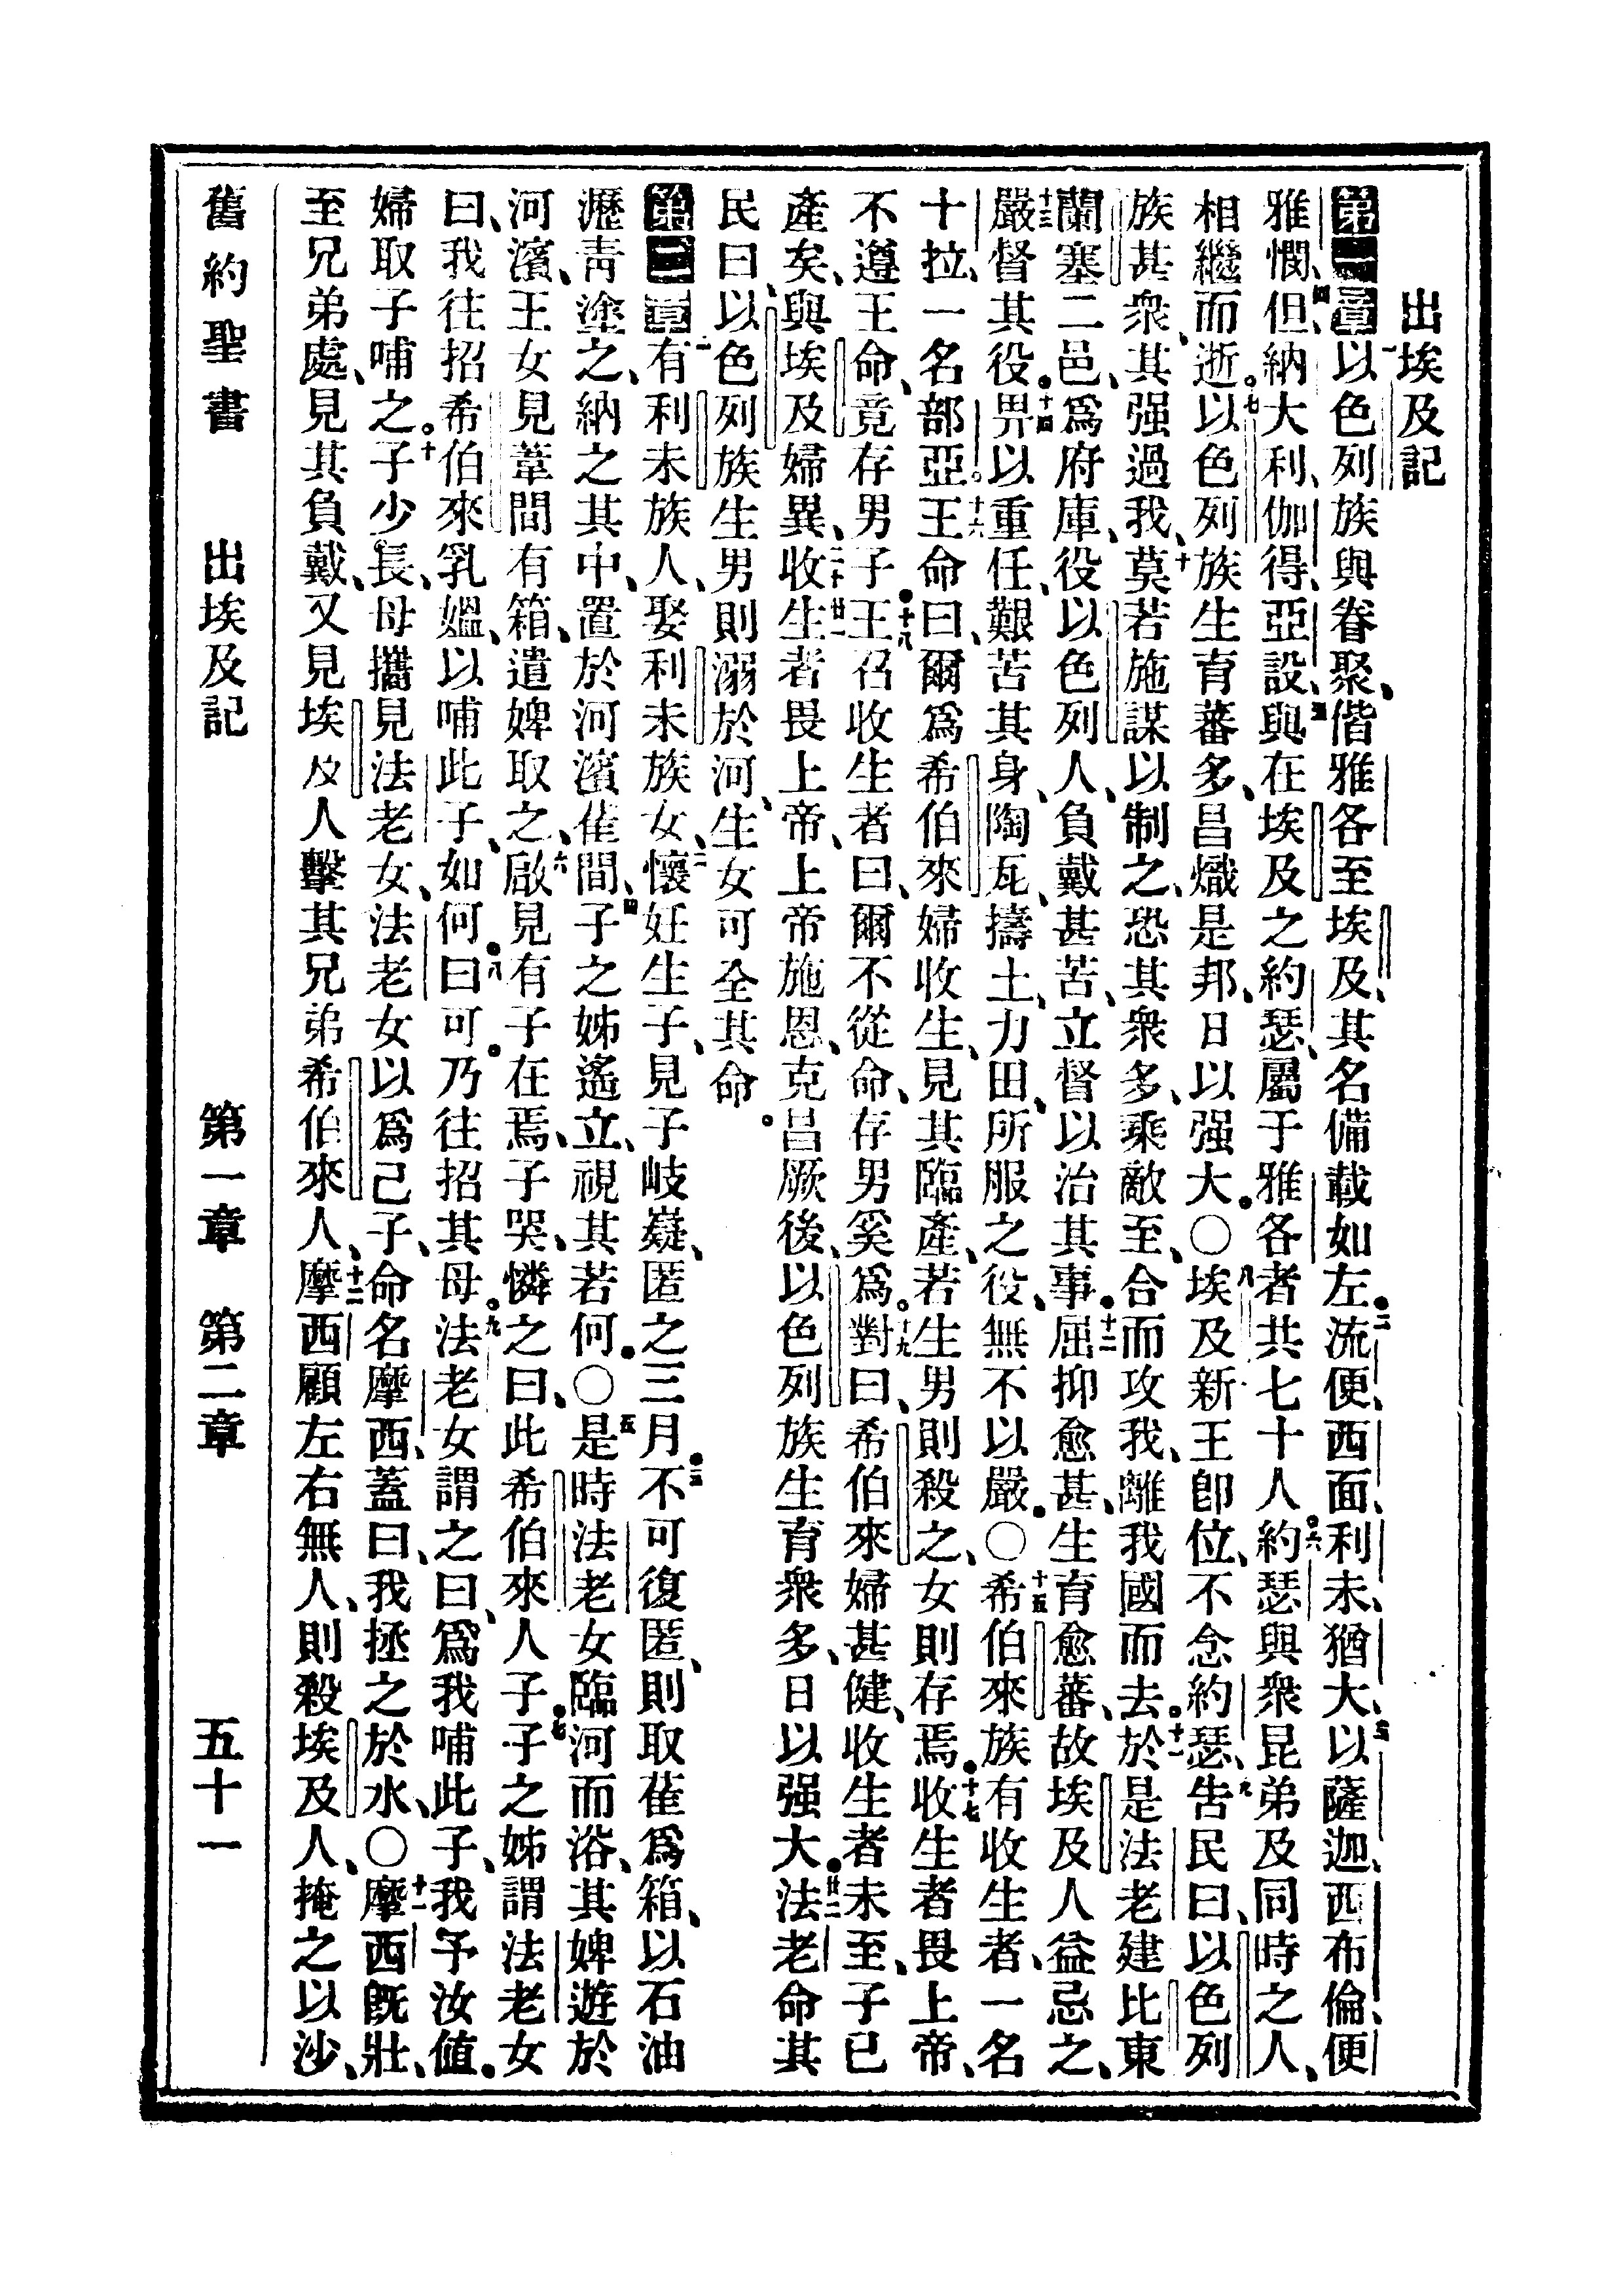 出埃及記
第一章 一以色列族與眷聚、偕雅各至埃及、其名備載如左。二流便、西面、利未、猶大、三以薩迦、西布倫、便
雅憫、四但、納大利、伽得、亞設、五與在埃及之約瑟、屬于雅各者共七十人。六約瑟與衆昆弟及同時之人、
相繼而逝。七以色列族生育蕃多、昌熾是邦、日以强大。○八埃及新王卽位、不念約瑟、九告民曰、以色列
族甚衆、其强過我、十莫若施謀以制之、恐其衆多、乘敵至、合而攻我、離我國而去。十一於是法老建比東
蘭塞二邑、爲府庫、役以色列人、負戴甚苦、立督以治其事。十二屈抑愈甚、生育愈蕃、故埃及人益忌之、
十三嚴督其役。十四畀以重任、艱苦其身、陶瓦、擣土、力田、所服之役、無不以嚴。○十五希伯來族有收生者、一名
十拉、一名部亞。十六王命曰、爾爲希伯來婦收生、見其臨產、若生男則殺之、女則存焉。十七收生者畏上帝、
不遵王命、竟存男子。十八王召收生者曰、爾不從命、存男奚爲。十九對曰、希伯來婦甚健、收生者未至、子已
產矣、與埃及婦異、二十收廿一生者畏上帝、上帝施恩、克昌厥後、以色列族生育衆多、日以强大。廿二法老命其
民曰、以色列族生男則溺於河、生女可全其命。
第二章 一有利未族人、娶利未族女、二懷妊生子、見子岐嶷、匿之三月。三不可復匿、則取萑爲箱、以石油
瀝青塗之、納之其中、置於河濱萑間、四子之姊遙立、視其若何。○五是時法老女臨河而浴、其婢遊於
河濱、王女見葦間有箱、遣婢取之、六啟見有子在焉、子哭、憐之曰、此希伯來人子。七子之姊謂法老女
曰、我往招希伯來乳媼、以哺此子、如何。八曰可。乃往招其母。九法老女謂之曰、爲我哺此子、我予汝値。
婦取子哺之。十子少長、母攜見法老女、法老女以爲己子、命名摩西、蓋曰、我拯之於水、○十一摩西旣壯、
至兄弟處、見其負戴、又見埃及人擊其兄弟希伯來人、十二摩西顧左右無人、則殺埃及人、掩之以沙、
舊約聖書 出埃及記 第一章 第二章 五十一